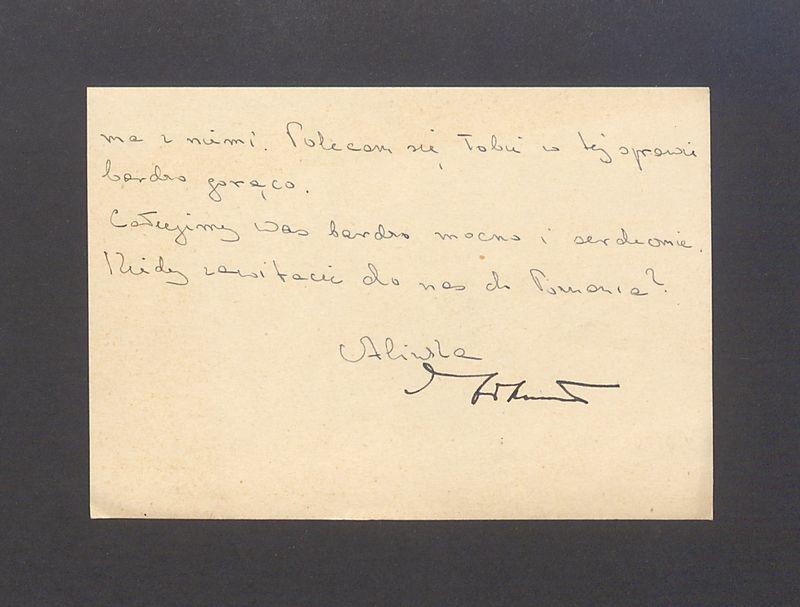 ma z nimi. Polecam się Tobie w tej sprawie
bardzo gorąco.
Całujemy Was bardzo mocno i serdecznie.
Kiedy zawitacie do nas do Poznania?
Alinka